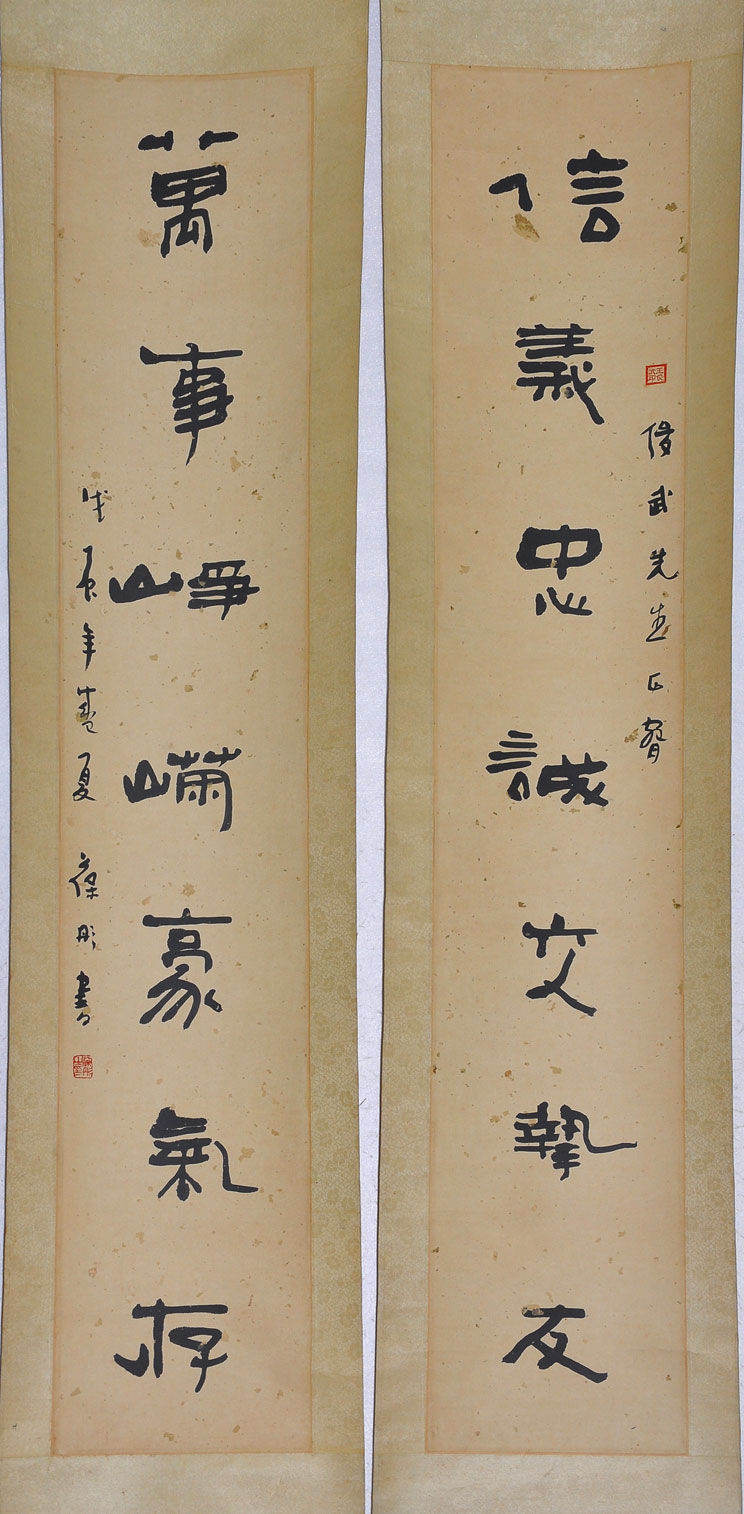 信義忠誠交摯友
武先生正
萬事崢嶸豪氣存
戊辰年春夏 葆彤書